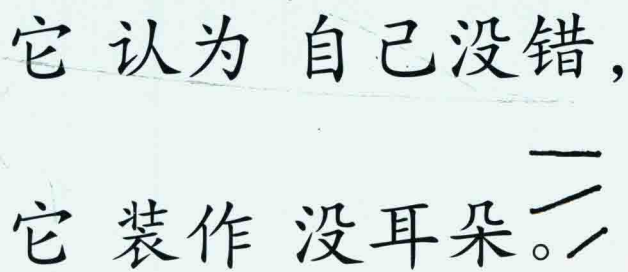 它 认为 自己没错，
它 装作 没耳朵。